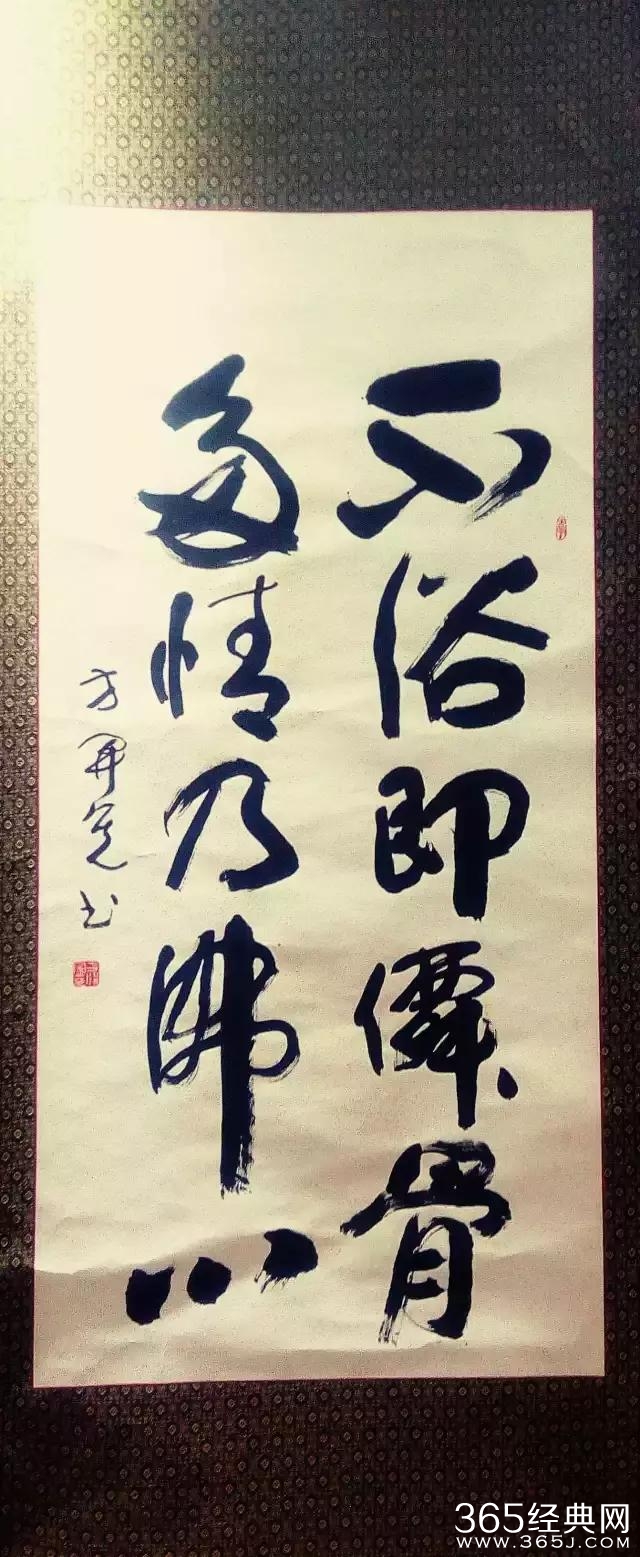 不俗即僊骨
多情乃佛心
方开宽书
365经典网
www.365J.com